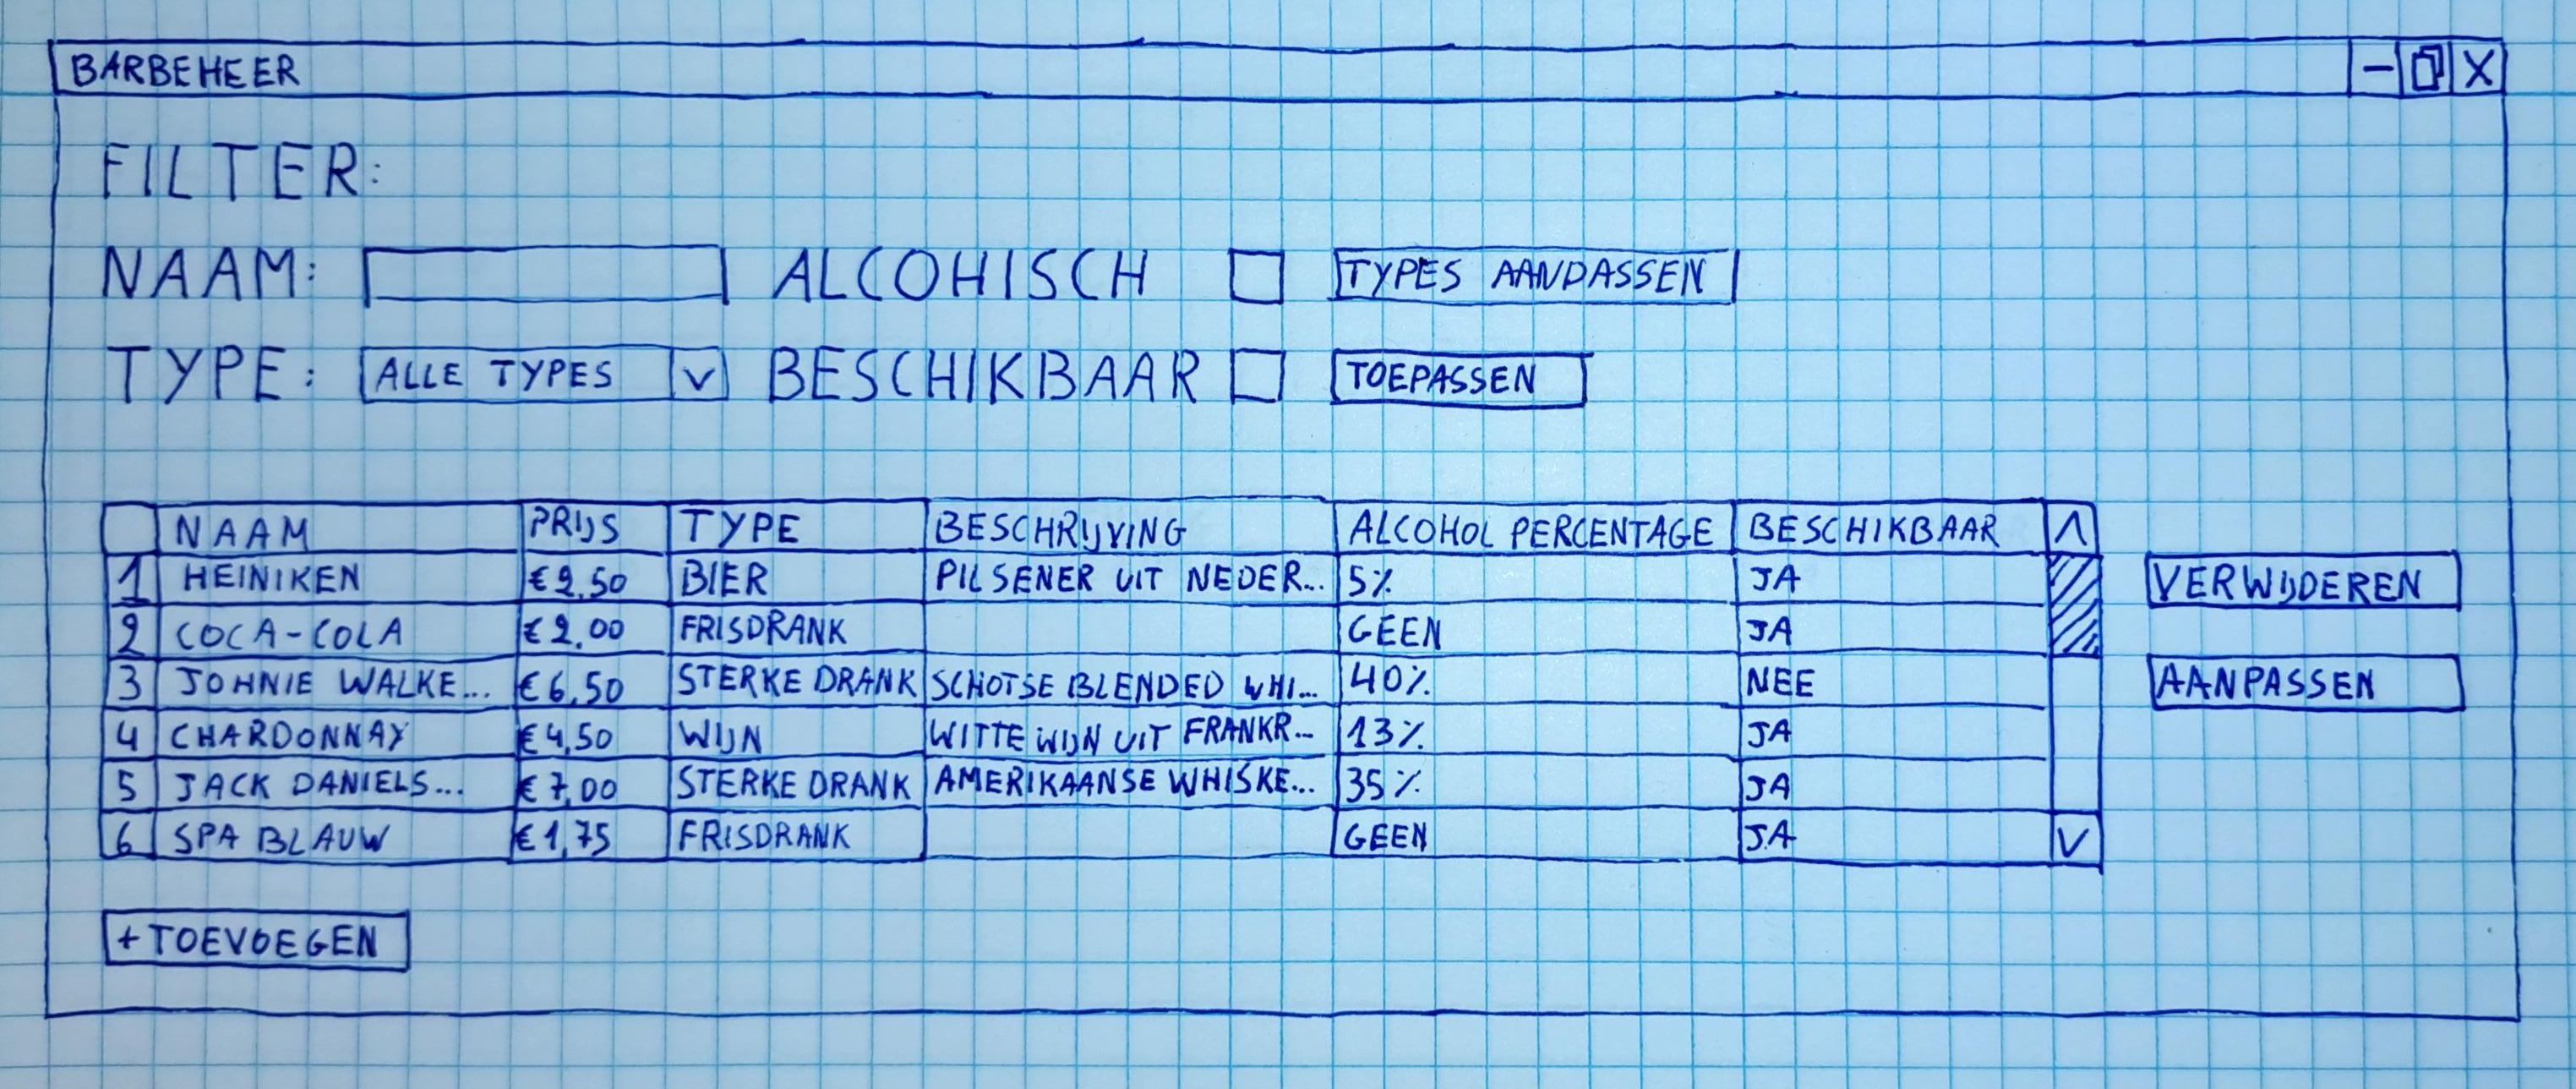 BARBEHEER
FILTER:
NAAM: ALCOHISCH TYPES AANPASSEN
TYPE: ALLE TYPES V BESCHIKBAAR TOEPASSEN
NAAM PRIJS TYPE BESCHRIJVING ALCOHOL PERCENTAGE BESCHIKBAAR
1 HEINIKEN €2,50 BIER PILSENER UIT NEDER... 5% JA VERWIJDEREN
2 COCA-COLA €2,00 FRISDRANK GEEN JA
3 JOHNIE WALKE... €6,50 STERKE DRANK SCHOTSE BLENDED WHI... 40% NEE AANPASSEN
4 CHARDONNAY €4,50 WIJN WITTE WIJN UIT FRANKR... 13% JA
5 JACK DANIELS... €7,00 STERKE DRANK AMERIKAANSE WHISKE... 35% JA
6 SPA BLAUW €1,75 FRISDRANK GEEN JA
+ TOEVOEGEN